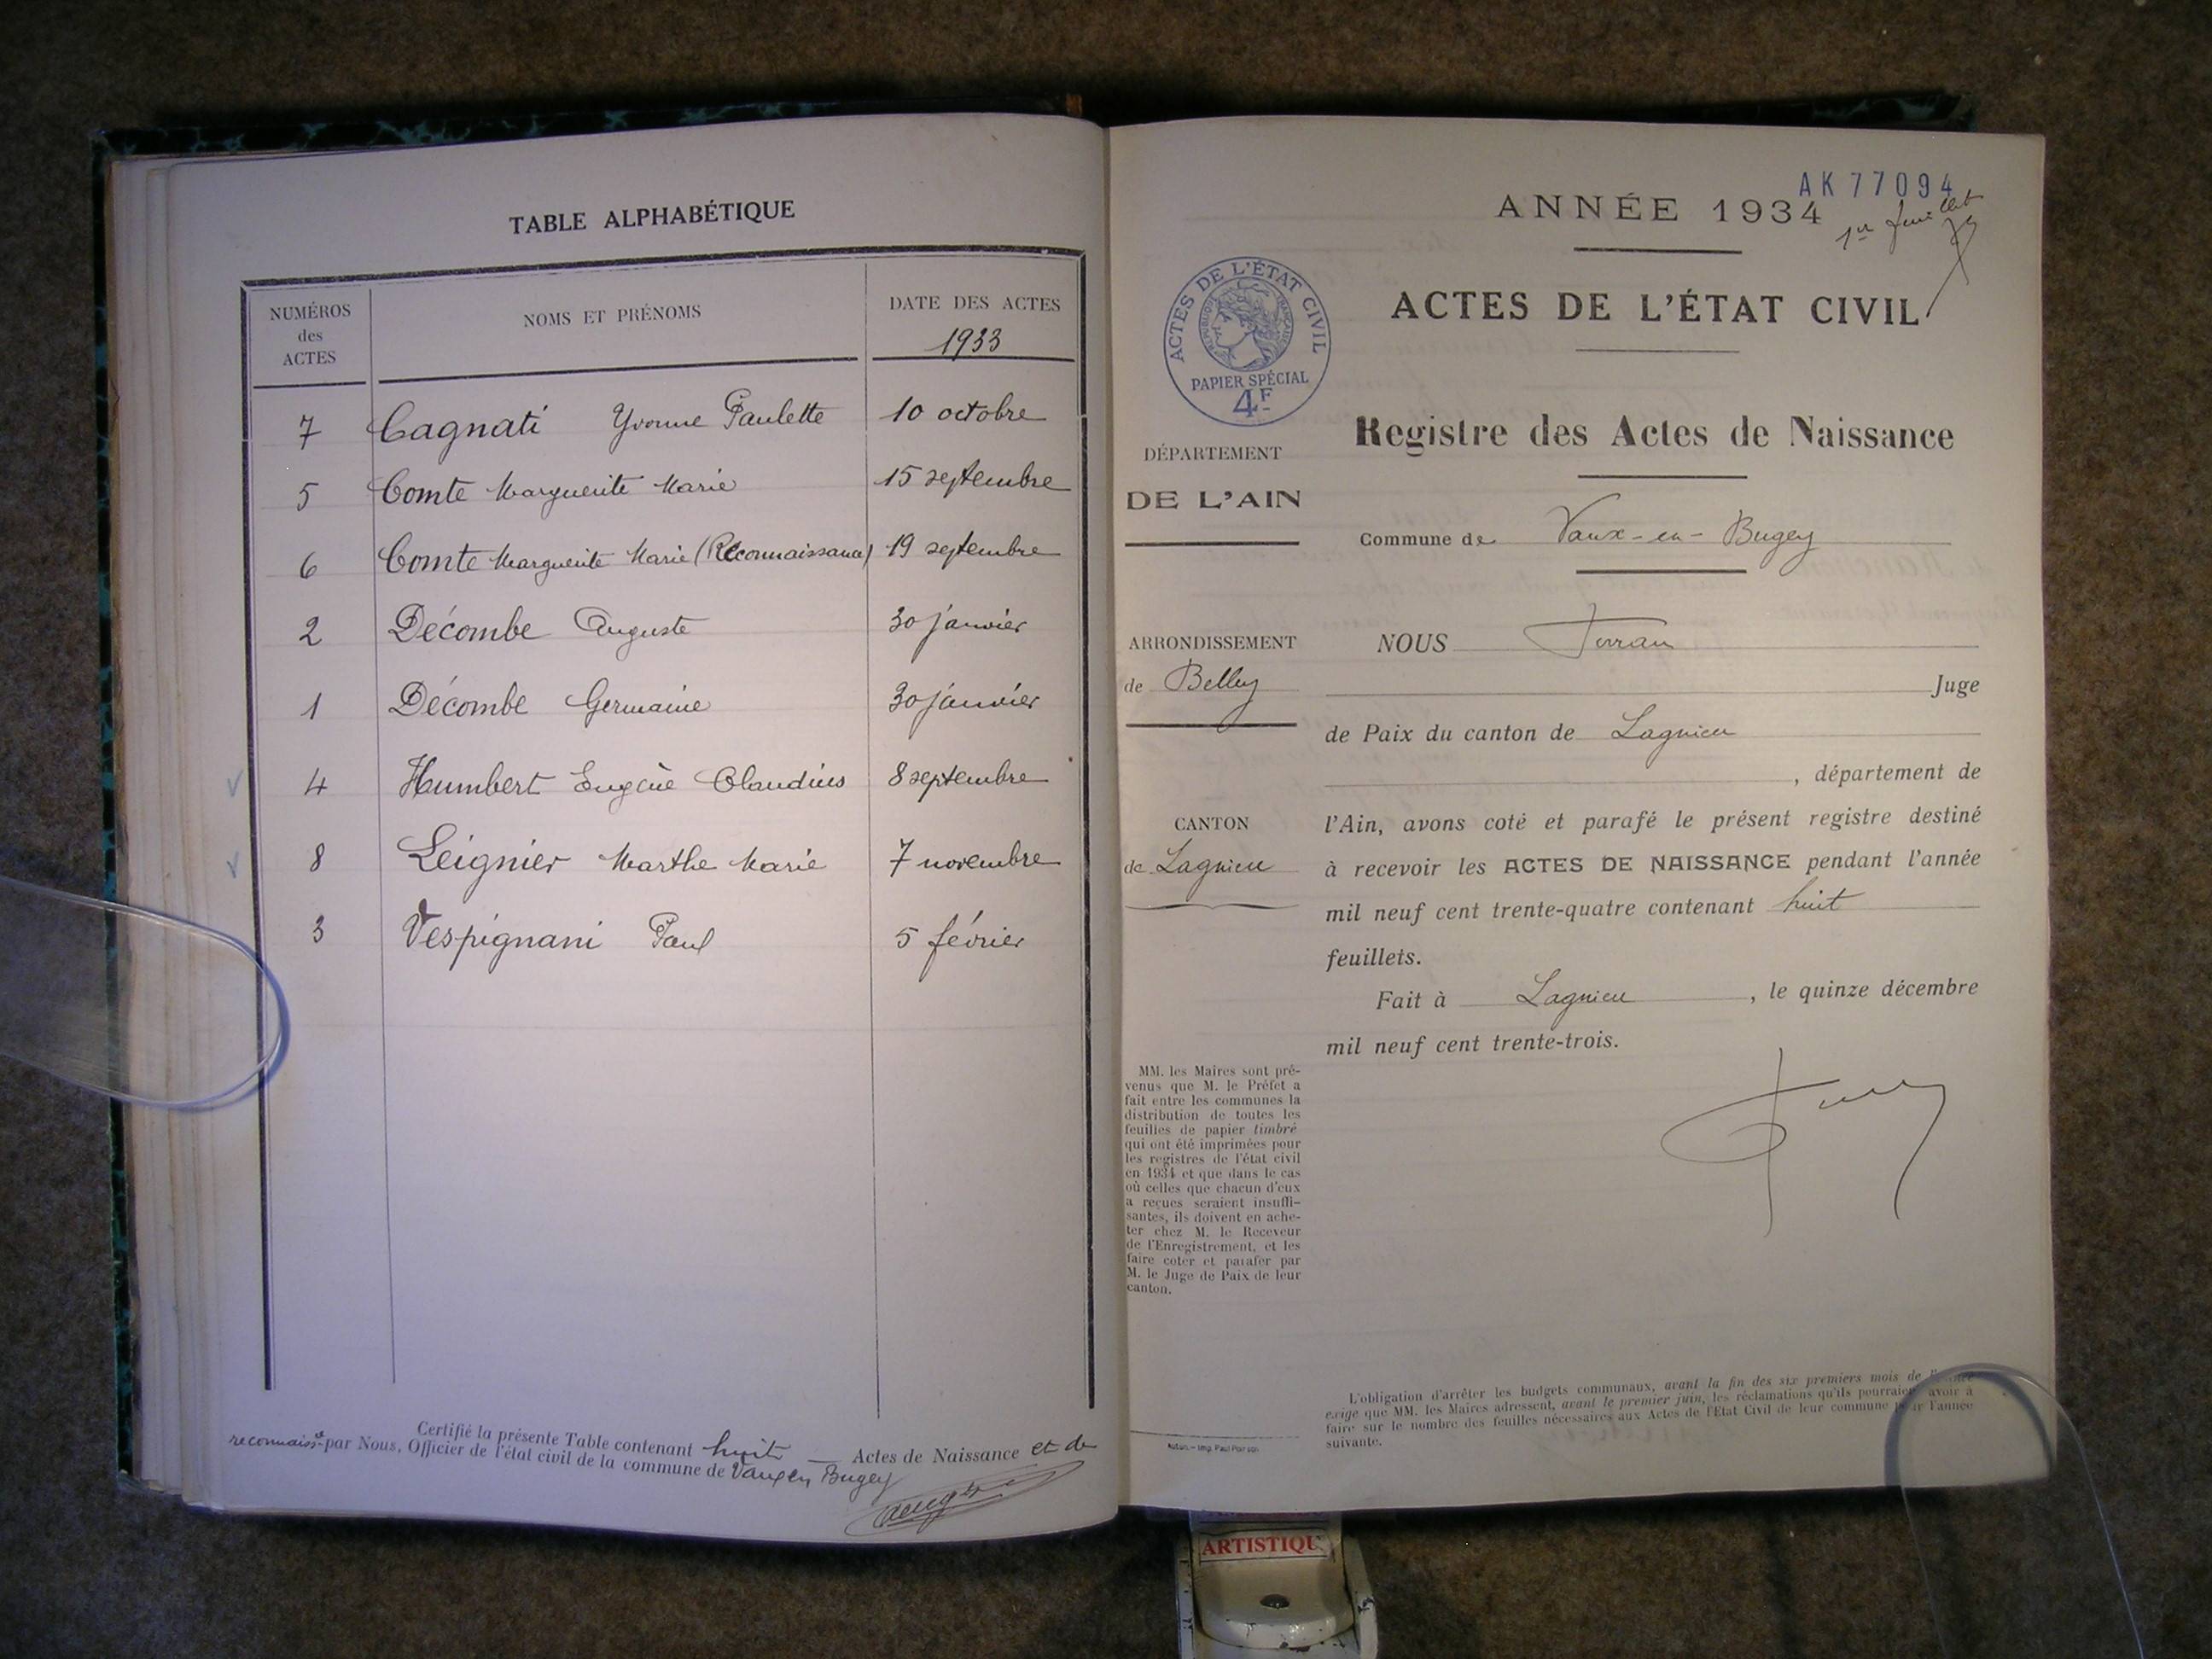 TABLE ALPHABÉTIQUE
NUMÉROS
des
ACTES
NOMS ET PRÉNOMS
DATE DES ACTES
1933
7 Cagnati Yvonne Paulette 10 octobre
5 Comte Marguerite Marie 15 septembre
6 Comte Marguerite Marie (Reconnaissance) 19 septembre
2 Décombe Auguste 30 janvier
1 Décombe Germaine 30 janvier
4 Humbert Eugène Claudius 8 septembre
8 Leignier Marthe Marie 7 novembre
3 Vespignani Paul 5 février
Certifié la présente Table contenant huit Actes de Naissance et de
reconnaiss^ce par Nous, Officier de l'état civil de la commune de Vaux en Bugey
AK77094
ANNÉE 1934
1er feuillet
ACTES DE L'ÉTAT CIVIL
ACTES DE L'ÉTAT CIVIL
RÉPUBLIQUE FRANÇAISE
PAPIER SPÉCIAL
4F
Registre des Actes de Naissance
DÉPARTEMENT
DE L'AIN
Commune de Vaux-en-Bugey
ARRONDISSEMENT
de Belley
CANTON
de Lagnieu
NOUS Ferran
Juge
de Paix du canton de Lagnieu
, département de
l'Ain, avons coté et parafé le présent registre destiné
à recevoir les ACTES DE NAISSANCE pendant l'année
mil neuf cent trente-quatre contenant huit
feuillets.
Fait à Lagnieu, le quinze décembre
mil neuf cent trente-trois.
MM. les Maires sont pré-
venus que M. le Préfet a
fait entre les communes la
distribution de toutes les
feuilles de papier timbré
qui ont été imprimées pour
les registres de l'état civil
en 1934 et que dans le cas
où celles que chacun d'eux
a reçues seraient insuffi-
santes, ils doivent en ache-
ter chez M. le Receveur
de l'Enregistrement, et les
faire coter et parafer par
M. le Juge de Paix de leur
canton.
L'obligation d'arrêter les budgets communaux, avant la fin des six premiers mois de l'année
exige que MM. les Maires adressent, avant le premier juin, les réclamations qu'ils pourraient avoir à
faire sur le nombre des feuilles nécessaires aux Actes de l'Etat Civil de leur commune pour l'année
suivante.
Imp. Paul
ARTISTIQU